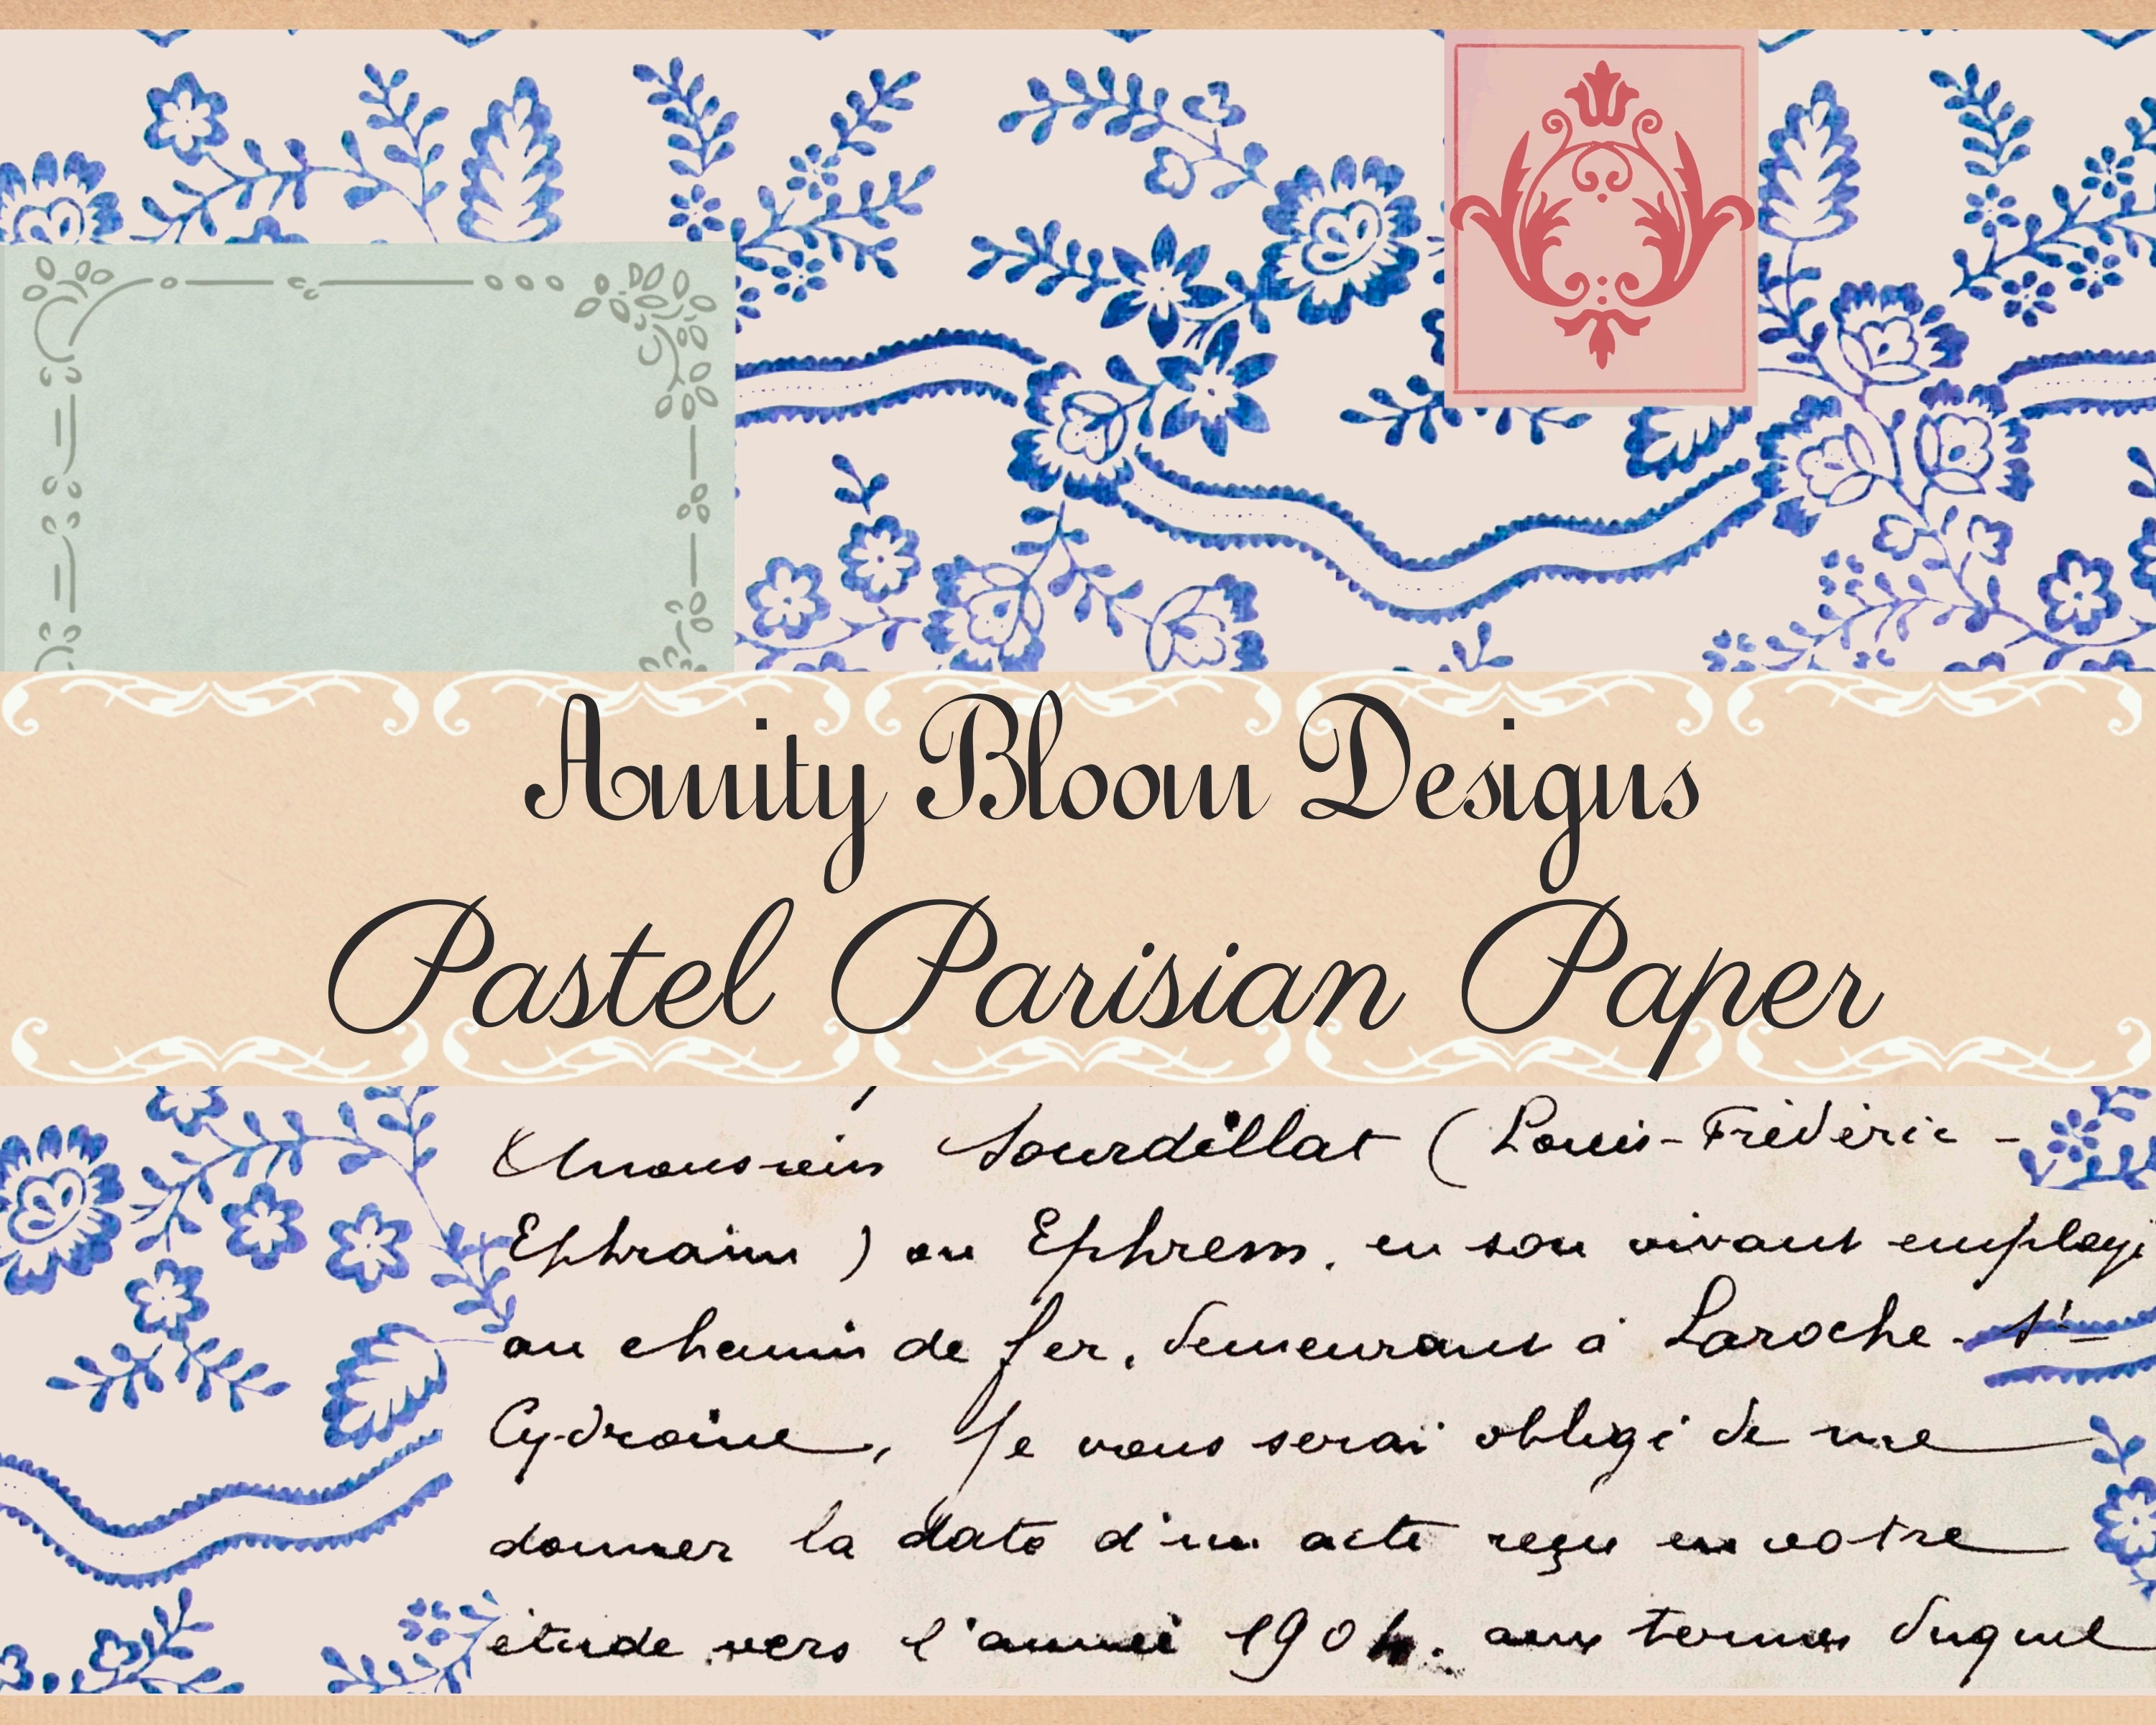 Amity Bloom Designs
Pastel Parisian Paper
Sourdillat (Louis-Frédéric -
Ephraim) ou Ephrem, en son vivant employé
au chemin de fer, demeurant à Laroche - St-
Cydroine, Je vous serai obligé de me
donner la date d'un acte reçu en votre
étude vers l'année 1904. aux termes duquel